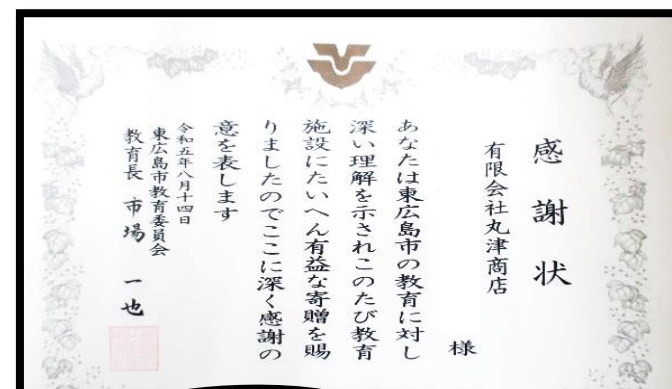 感謝状
有限会社丸津商店
様
あなたは東広島市の教育に対し
深い理解を示されこのたび教育
施設にたいへん有益な寄贈を賜
りましたのでここに深く感謝の
意を表します
令和五年八月十四日
東広島市教育委員会
教育長 市場 一也